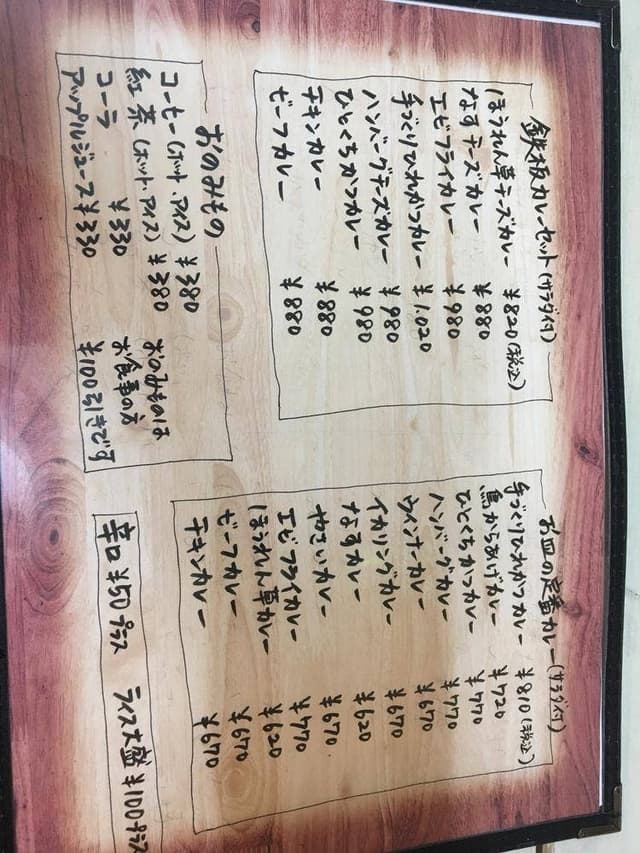 鉄板カレーセット(サラダ付)
ほうれん草チーズカレー ¥820(税込)
なすチーズカレー ¥880
エビフライカレー ¥980
手づくりひれかつカレー ¥1,020
ハンバーグチーズカレー ¥980
ひとくちかつカレー ¥980
チキンカレー ¥880
ビーフカレー ¥880
おのみもの
コーヒー(ホット、アイス) ¥380
紅茶(ホット、アイス) ¥380
コーラ ¥330
アップルジュース ¥330
おのみものは
お食事の方
¥100引きです
お皿の定番カレー(サラダ付)
手づくりひれかつカレー ¥810(税込)
鳥からあげカレー ¥720
ひとくちかつカレー ¥770
ハンバーグカレー ¥770
ウインナーカレー ¥670
イカリングカレー ¥670
なすカレー ¥620
やさいカレー ¥670
エビフライカレー ¥770
ほうれん草カレー ¥620
ビーフカレー ¥670
チキンカレー ¥670
辛口 ¥50プラス ライス大盛 ¥100プラス